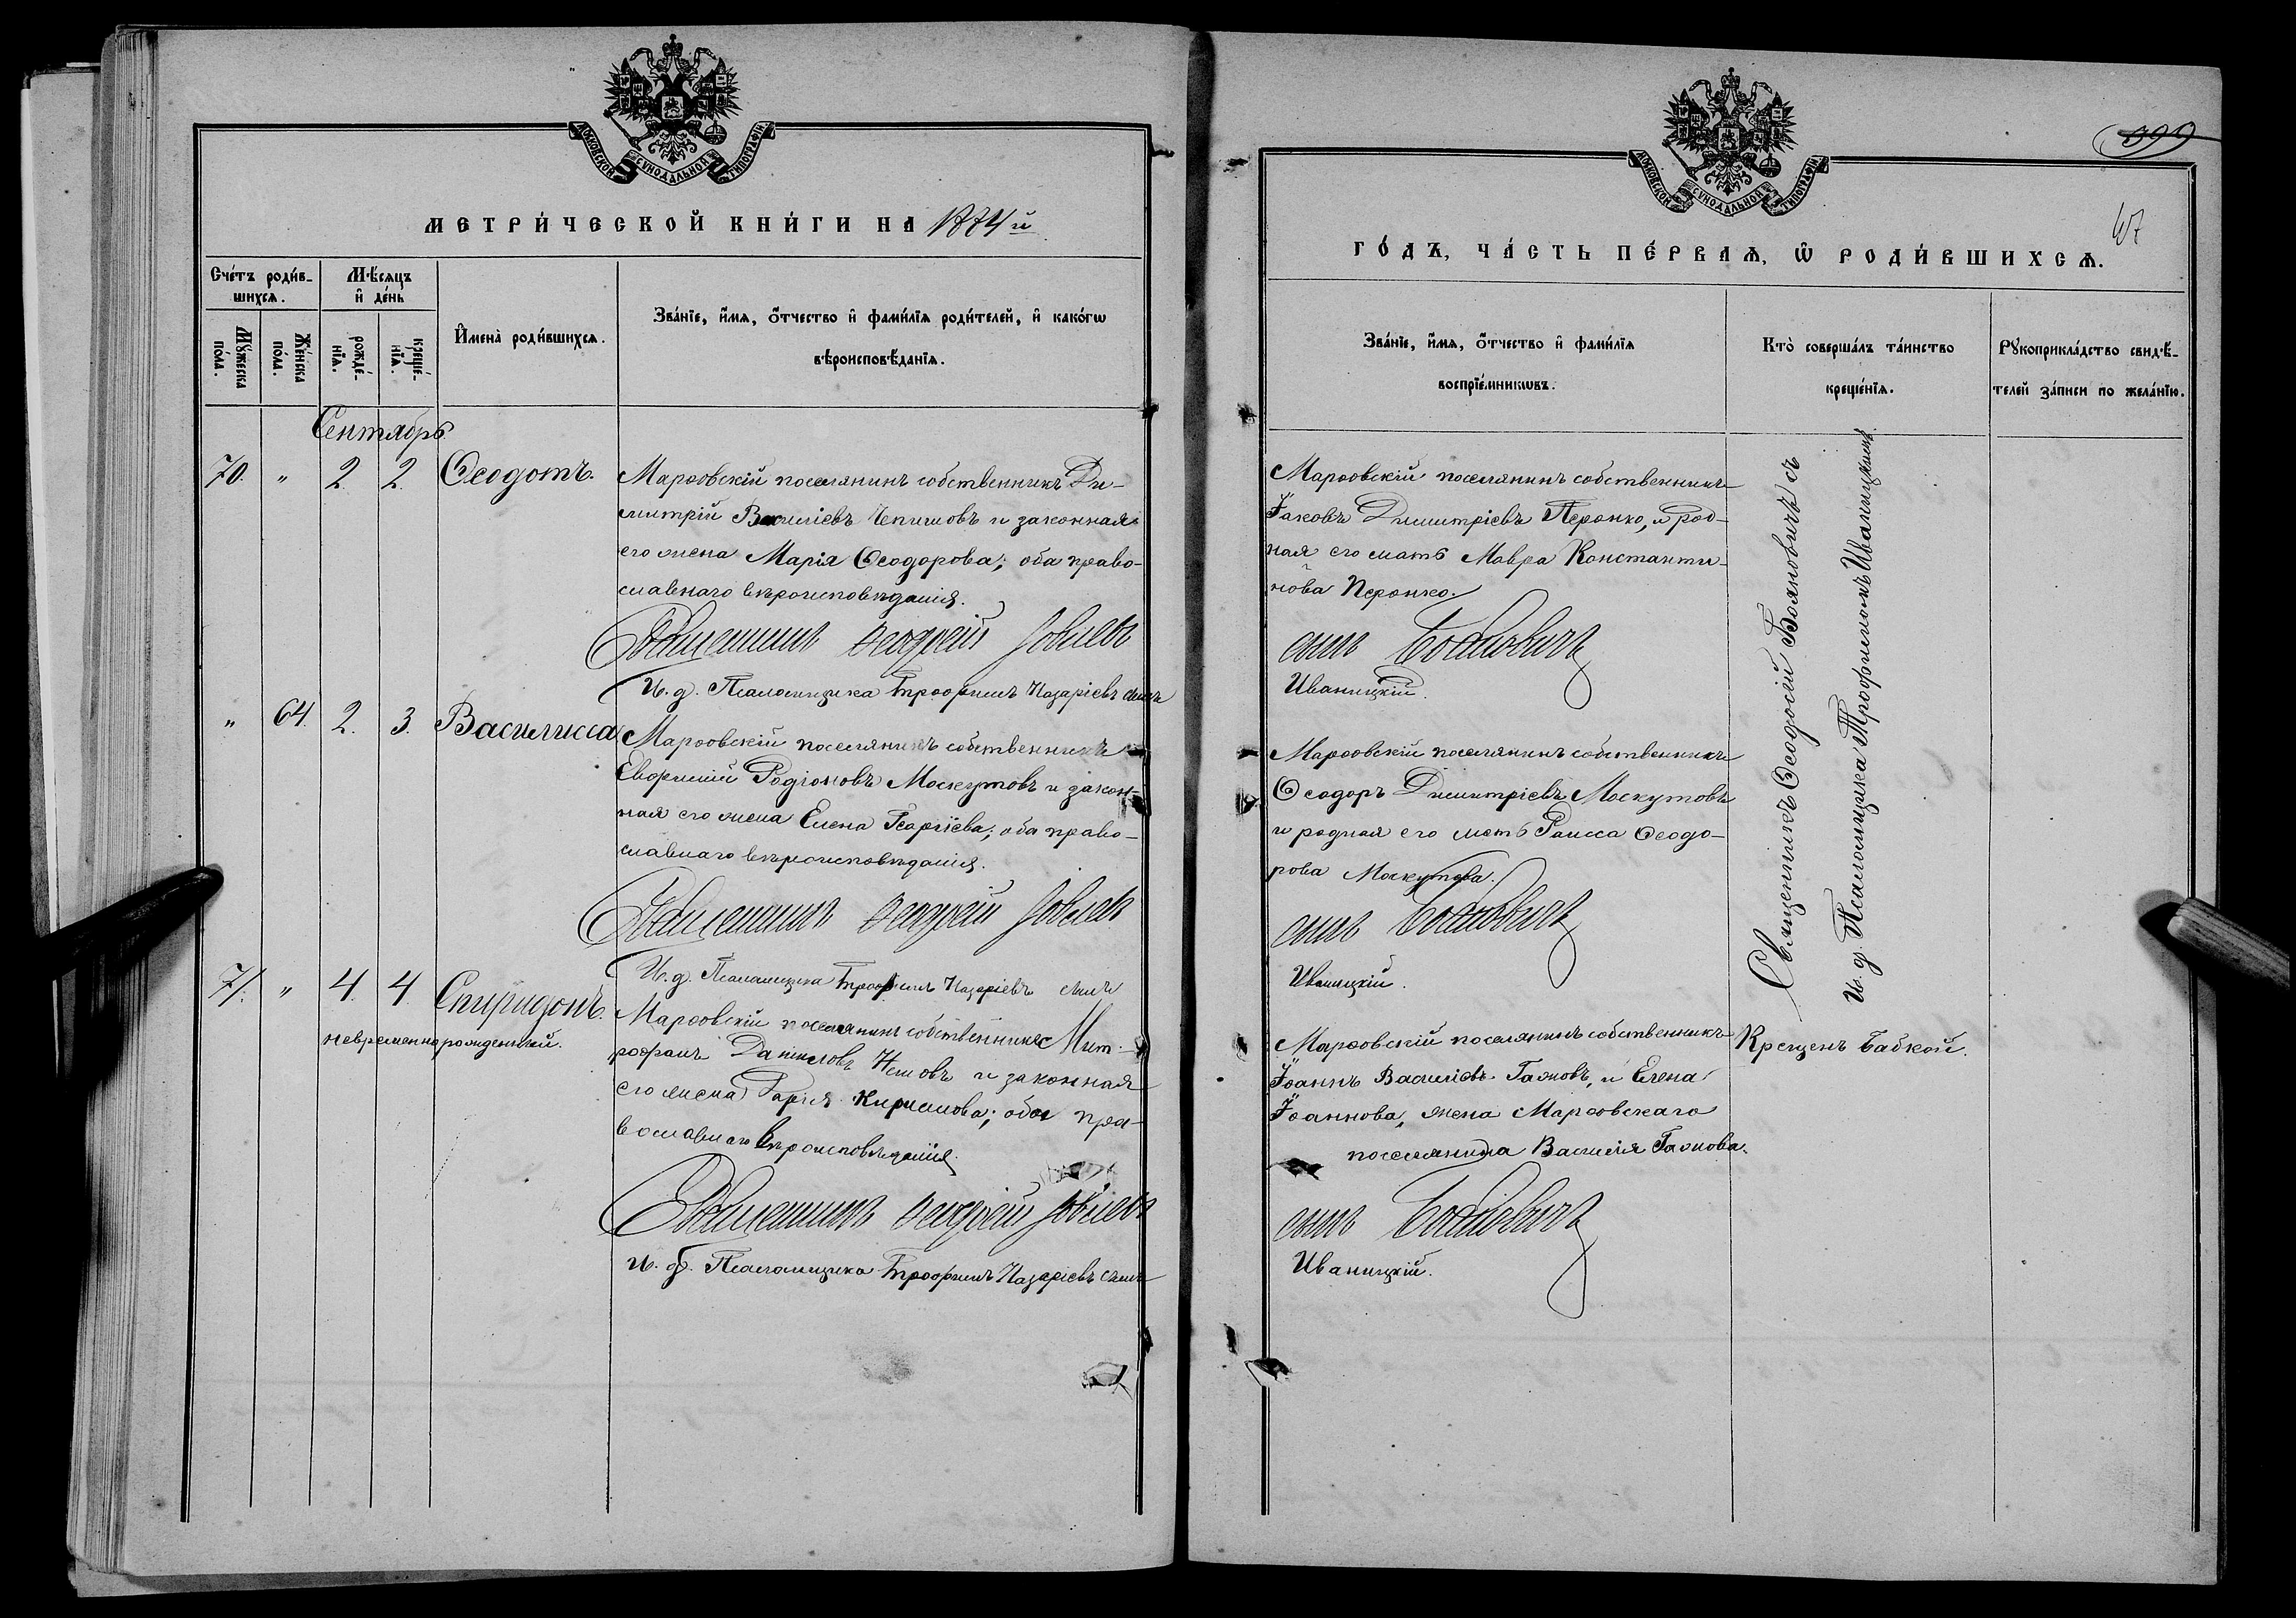 МОСКОВСКОЙ СѴНОДАЛЬНОЙ ТИПОГРАФІИ
МЕТРИ́ЧЕСКОЙ КНИ́ГИ НА 1874й
Сче́тъ роди́в-
шихся.
Мѣ́сяцъ
и҆ де́нь
Мꙋ́жеска
по́ла.
Же́нска
по́ла.
рожде́-
нїѧ.
креще́-
нїѧ.
И҆мена̀ роди́вшихсѧ.
Зва́нїе, и҆́мѧ, ѻ҆́тчество и҆ фами́лїѧ роди́телей, и҆ како́гѡ
вѣроисповѣ́данїѧ.
Сентябрь.
70. " 2. 2. Ѳеодотъ.
Марѳовскій поселянинъ собственникъ Ди-
митрій Василіевъ Чепишовъ и законная
его жена Марія Ѳеодорова; оба право-
славнаго вѣроисповѣданія.
Священникъ Ѳеодосій Іовлевъ
И. д. Псаломщика Трофимъ Назаріевъ сынъ
" 64. 2. 3. Василисса
Марѳовскій поселянинъ собственникъ
Евфимій Родіоновъ Москутовъ и закон-
ная его жена Елена Георгіева; оба право-
славнаго вѣроисповѣданія.
Священникъ Ѳеодосій Іовлевъ
И. д. Псаломщика Трофимъ Назаріевъ сынъ
71. " 4. 4. Спиридонъ.
невременнорожденный.
Марѳовскій поселянинъ собственникъ Мит-
рофанъ Даніиловъ и законная
его жена Кириллова; оба пра-
вославнаго вѣроисповѣданія.
Священникъ Ѳеодосій Іовлевъ
И. д. Псаломщика Трофимъ Назаріевъ сынъ
399
МОСКОВСКОЙ СѴНОДАЛЬНОЙ ТИПОГРАФІИ
47
ГО́ДЪ, ЧА́СТЬ ПЕ́РВАѦ, Ѡ҆ РОДИ́ВШИХСѦ.
Зва́нїе, и҆́мѧ, ѻ҆́тчество и҆ фами́лїѧ
воспрїе́мникѡвъ.
Кто̀ соверша́лъ та́инство
креще́нїѧ.
Рꙋкоприкла́дство свидѣ́-
телей за́писи по жела́нїю.
Марѳовскій поселянинъ собственникъ
Іаковъ Димитріевъ Перонко, и род-
ная его мать Мавра Константи-
нова Перонко.
сынъ Бояновичъ
Иваницкій.
Марѳовскій поселянинъ собственникъ
Ѳеодоръ Димитріевъ Москутовъ
и родная его мать Раисса Ѳеодо-
рова Москутова.
сынъ Бояновичъ
Иваницкій.
Марѳовскій поселянинъ собственникъ
Іоаннъ Василіевъ Гажовъ, и Елена
Іоаннова, жена Марѳовскаго
поселянина Василія Гажова.
сынъ Бояновичъ
Иваницкій.
Священникъ Ѳеодосій Бояновичъ съ
И. д. Псаломщика Трофимомъ Иваницкимъ
Крещенъ бабкой.